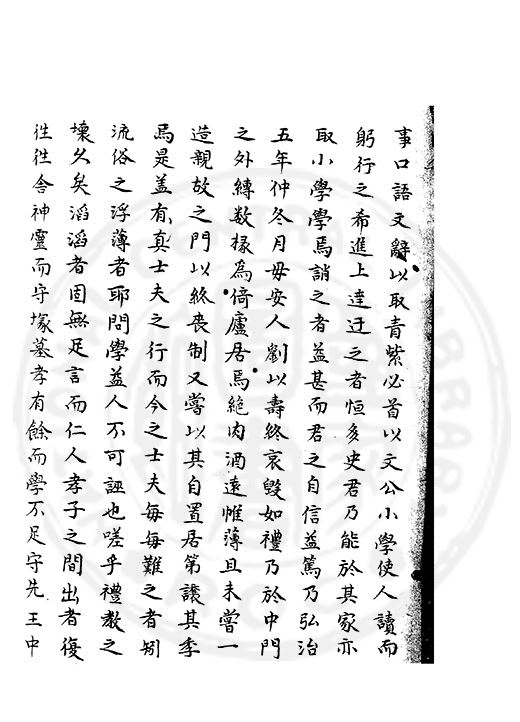 事口語文辭以取青紫必首以文公小學使人讀而
躬行之希進上達迂之者恒多史君乃能於其家亦
取小學學焉誚之者益甚而君之自信益篤乃弘治
五年仲冬月毋安人劉以壽終哀毀如禮乃於中門
之外縛数椽為倚廬居焉絶肉酒遠帷薄且未嘗一
造親故之門以終丧制又嘗以其自置居第讓其季
焉是盖有真士夫之行而今之士夫每每難之者矧
流俗之浮薄者耶問學益人不可誣也嗟乎禮教之
壞久矣滔滔者固無足言而仁人孝子之間出者復
徃徃舍神靈而守塚墓孝有餘而學不足守先王中